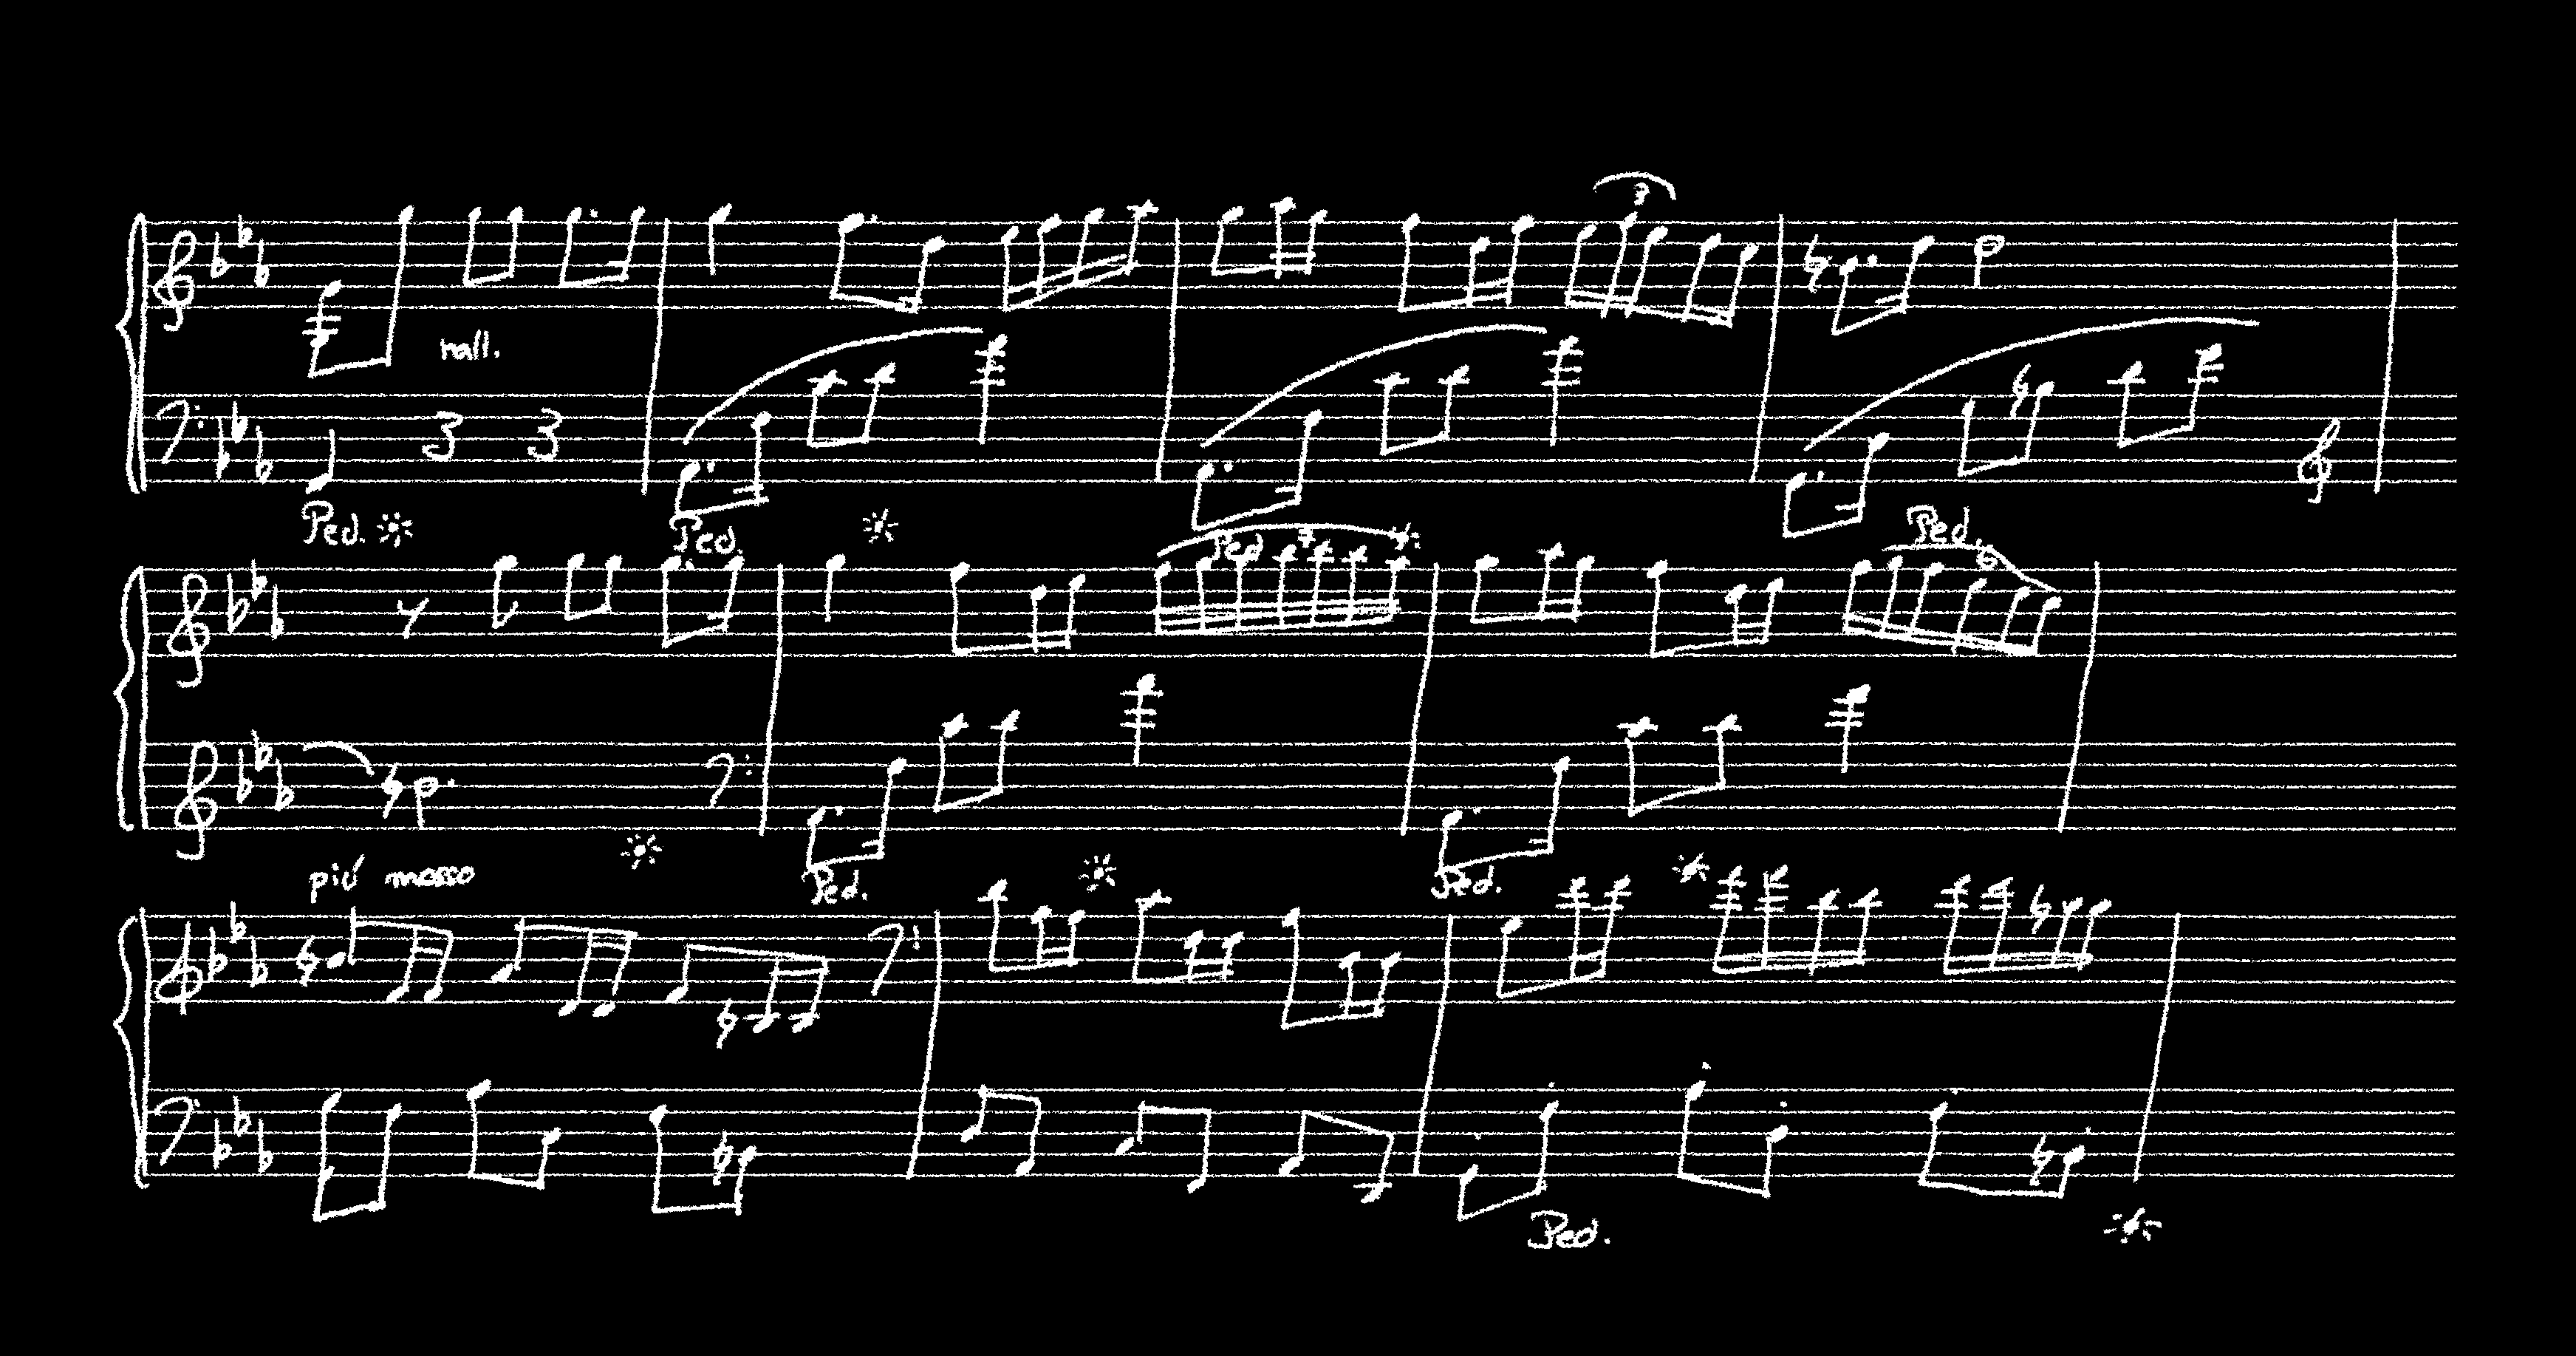 3
rall.
Ped. Ped.
Ped Ped.
6
più mosso
Ped. Ped.
Ped.